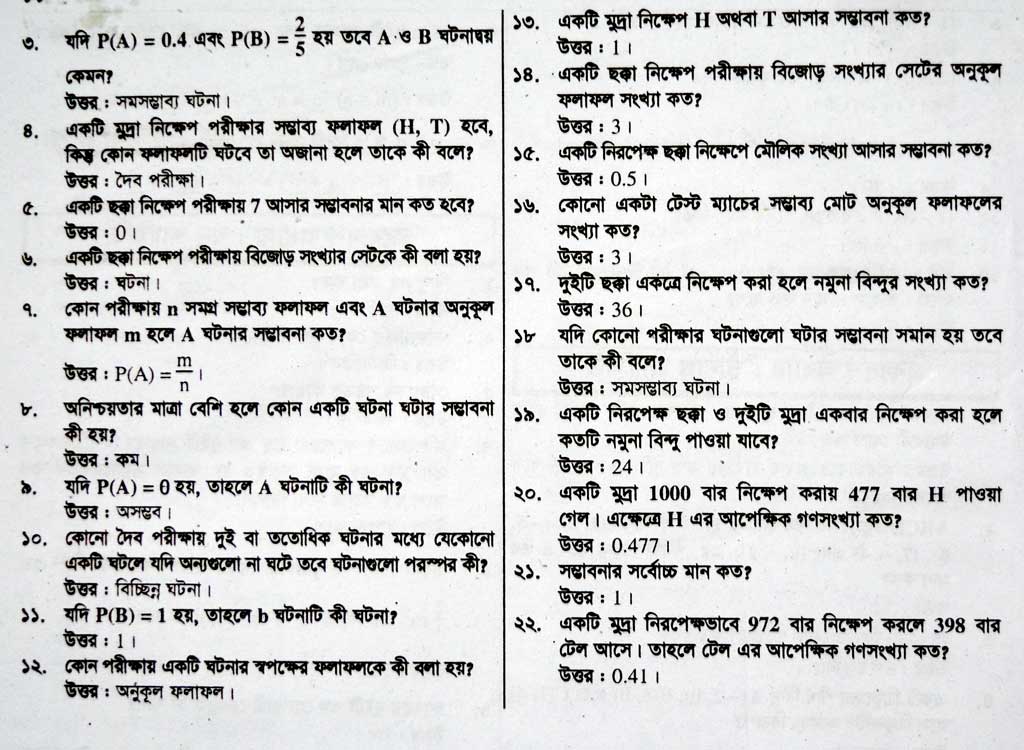 ৩. যদি P(A) = 0.4 এবং P(B) = 2/5 হয় তবে A ও B ঘটনাদ্বয়
কেমন?
উত্তর : সমসম্ভাব্য ঘটনা।
৪. একটি মুদ্রা নিক্ষেপ পরীক্ষার সম্ভাব্য ফলাফল (H, T) হবে,
কিন্তু কোন ফলাফলটি ঘটবে তা অজানা হলে তাকে কী বলে?
উত্তর : দৈব পরীক্ষা।
৫. একটি ছক্কা নিক্ষেপ পরীক্ষায় 7 আসার সম্ভাবনার মান কত হবে?
উত্তর : 0।
৬. একটি ছক্কা নিক্ষেপ পরীক্ষায় বিজোড় সংখ্যার সেটকে কী বলা হয়?
উত্তর : ঘটনা।
৭. কোন পরীক্ষায় n সমগ্র সম্ভাব্য ফলাফল এবং A ঘটনার অনুকূল
ফলাফল m হলে A ঘটনার সম্ভাবনা কত?
উত্তর : P(A) = m/n।
৮. অনিশ্চয়তার মাত্রা বেশি হলে কোন একটি ঘটনা ঘটার সম্ভাবনা
কী হয়?
উত্তর : কম।
৯. যদি P(A) = 0 হয়, তাহলে A ঘটনাটি কী ঘটনা?
উত্তর : অসম্ভব।
১০. কোনো দৈব পরীক্ষায় দুই বা ততোধিক ঘটনার মধ্যে যেকোনো
একটি ঘটলে যদি অন্যগুলো না ঘটে তবে ঘটনাগুলো পরস্পর কী?
উত্তর : বিচ্ছিন্ন ঘটনা।
১১. যদি P(B) = 1 হয়, তাহলে b ঘটনাটি কী ঘটনা?
উত্তর : 1।
১২. কোন পরীক্ষায় একটি ঘটনার স্বপক্ষের ফলাফলকে কী বলা হয়?
উত্তর : অনুকূল ফলাফল।
১৩. একটি মুদ্রা নিক্ষেপ H অথবা T আসার সম্ভাবনা কত?
উত্তর : 1।
১৪. একটি ছক্কা নিক্ষেপ পরীক্ষায় বিজোড় সংখ্যার সেটের অনুকূল
ফলাফল সংখ্যা কত?
উত্তর : 3।
১৫. একটি নিরপেক্ষ ছক্কা নিক্ষেপে মৌলিক সংখ্যা আসার সম্ভাবনা কত?
উত্তর : 0.5।
১৬. কোনো একটা টেস্ট ম্যাচের সম্ভাব্য মোট অনুকূল ফলাফলের
সংখ্যা কত?
উত্তর : 3।
১৭. দুইটি ছক্কা একত্রে নিক্ষেপ করা হলে নমুনা বিন্দুর সংখ্যা কত?
উত্তর : 36।
১৮ যদি কোনো পরীক্ষার ঘটনাগুলো ঘটার সম্ভাবনা সমান হয় তবে
তাকে কী বলে?
উত্তর : সমসম্ভাব্য ঘটনা।
১৯. একটি নিরপেক্ষ ছক্কা ও দুইটি মুদ্রা একবার নিক্ষেপ করা হলে
কতটি নমুনা বিন্দু পাওয়া যাবে?
উত্তর : 24।
২০. একটি মুদ্রা 1000 বার নিক্ষেপ করায় 477 বার H পাওয়া
গেল। এক্ষেত্রে H এর আপেক্ষিক গণসংখ্যা কত?
উত্তর : 0.477।
২১. সম্ভাবনার সর্বোচ্চ মান কত?
উত্তর : 1।
২২. একটি মুদ্রা নিরপেক্ষভাবে 972 বার নিক্ষেপ করলে 398 বার
টেল আসে। তাহলে টেল এর আপেক্ষিক গণসংখ্যা কত?
উত্তর : 0.41।